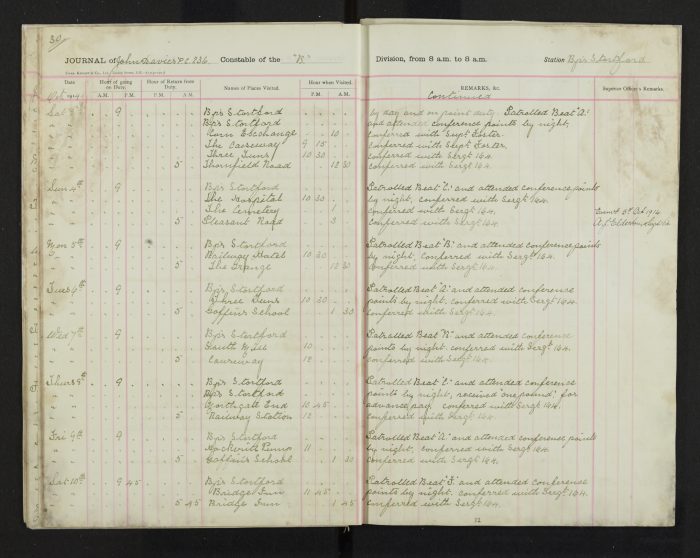 30
JOURNAL of John Davies P.C. 236 Constable of the "B" Division, from 8 a.m. to 8 a.m. Station Bp's Stortford
Date Hour of going on Duty. Hour of Return from Duty. Names of Places Visited. Hour when Visited. REMARKS, &c. Superior Officer's Remarks.
Oct 1914 A.M. P.M. P.M. A.M. P.M. A.M. Continued
Sat 9 Bp's Stortford by day and on point duty Patrolled Beat "A"
" " Bp's Stortford and attended conference points by night,
" " Corn Exchange 10 conferred with Supt Foster.
" " The Causeway 9 15 conferred with Supt Foster.
" " Three Tuns 10 30 conferred with Sergt 164.
" " 5 Thornfield Road 12 30 conferred with Sergt 164.
Sun 4th 9 Bp's Stortford Patrolled Beat and attended conference points
" " The Hospital 10 30 by night, conferred with Sergt 164.
" " The Cemetery 1 conferred with Sergt 164.
" " 5 Pleasant Road 3 conferred with Sergt 164.
5th Oct 1914
Mon 5th 9 Bp's Stortford Patrolled Beat "B" and attended conference points
" " Railway Hotel 10 30 by night, conferred with Sergt 164.
" " 5 The Grange 12 30 conferred with Sergt 164.
Tues 6th 9 Bp's Stortford Patrolled Beat "A" and attended conference
" " Three Tuns 10 30 points by night conferred with Sergt 164.
" " 5 School 1 30 conferred with Sergt 164.
Wed 7th 9 Bp's Stortford Patrolled Beat and attended conference
" " South 10 points by night. conferred with Sergt 164.
" " 5 Causeway 12 conferred with Sergt 164.
Thurs 8th 9 Bp's Stortford Patrolled Beat and attended conference
" " Bp's Stortford points by night, received one pound for
" " Northgate End 10 45 advance pay conferred with Sergt 164.
" " 5 Railway Station 12 conferred with Sergt 164.
Fri 9th 9 Bp's Stortford Patrolled Beat "A" and attended conference points
" " 11 by night, conferred with Sergt 164
" " 5 School 1 30 conferred with Sergt 164.
Sat 10th 9 45 Bp's Stortford Patrolled Beat and attended conference
" " Bridge Inn 11 45 points by night. conferred with Sergt 164.
" " 5 45 Bridge Inn 1 45 conferred with Sergt 164.
12